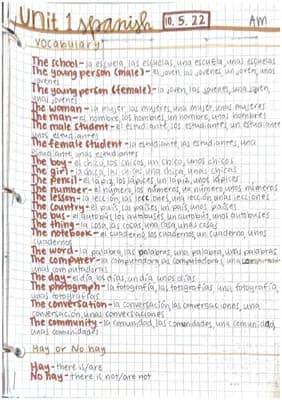 Unit 1 spanish 10.5.22 AM
Vocabulary
The school - la escuela, las escuelas, una escuela, unas escuelas
The young person (male) - el joven, los jovenes, un joven, unos
jovenes
The young person (female) - la joven, las jovenes, una joven,
unas jovenes
The woman - la mujer, las mujeres, una mujer, unas mujeres
The man - el hombre, los hombres, un hombre, unos hombres
The male student - el estudiante, los estudiantes, un estudiante
unos estudiantes
The female student - la estudiante, las estudiantes, una
estudiante, unas estudiantes
The boy - el chico, los chicos, un chico, unos chicos
The girl - la chica, las chicas, una chica, unas chicas
The pencil - el lápiz, los lápices, un lápiz, unos lápices
The number - el número, los números, un número, unos números
The lesson - la lección, las lecciones, una lección, unas lecciones
The country - el país, los países, un país, unos países
The bus - el autobús, los autobuses, un autobús, unos autobuses
The thing - la cosa, las cosas, una cosa, unas cosas
The notebook - el cuaderno, los cuadernos, un cuaderno, unos
cuadernos
The word - la palabra, las palabras, una palabra, unas palabras
The computer - la computadora, las computadoras, una
unas computadoras
The day - el día, los días, un día, unos días
The photograph - la fotografía, las fotografías, una fotografía,
unas fotografías
The conversation - la conversación, las conversaciones, una
conversación, unas conversaciones
The community - la comunidad, las comunidades, una comunidad,
unas comunidades
Hay or No hay
Hay - there is/are
No hay - there is not/are not